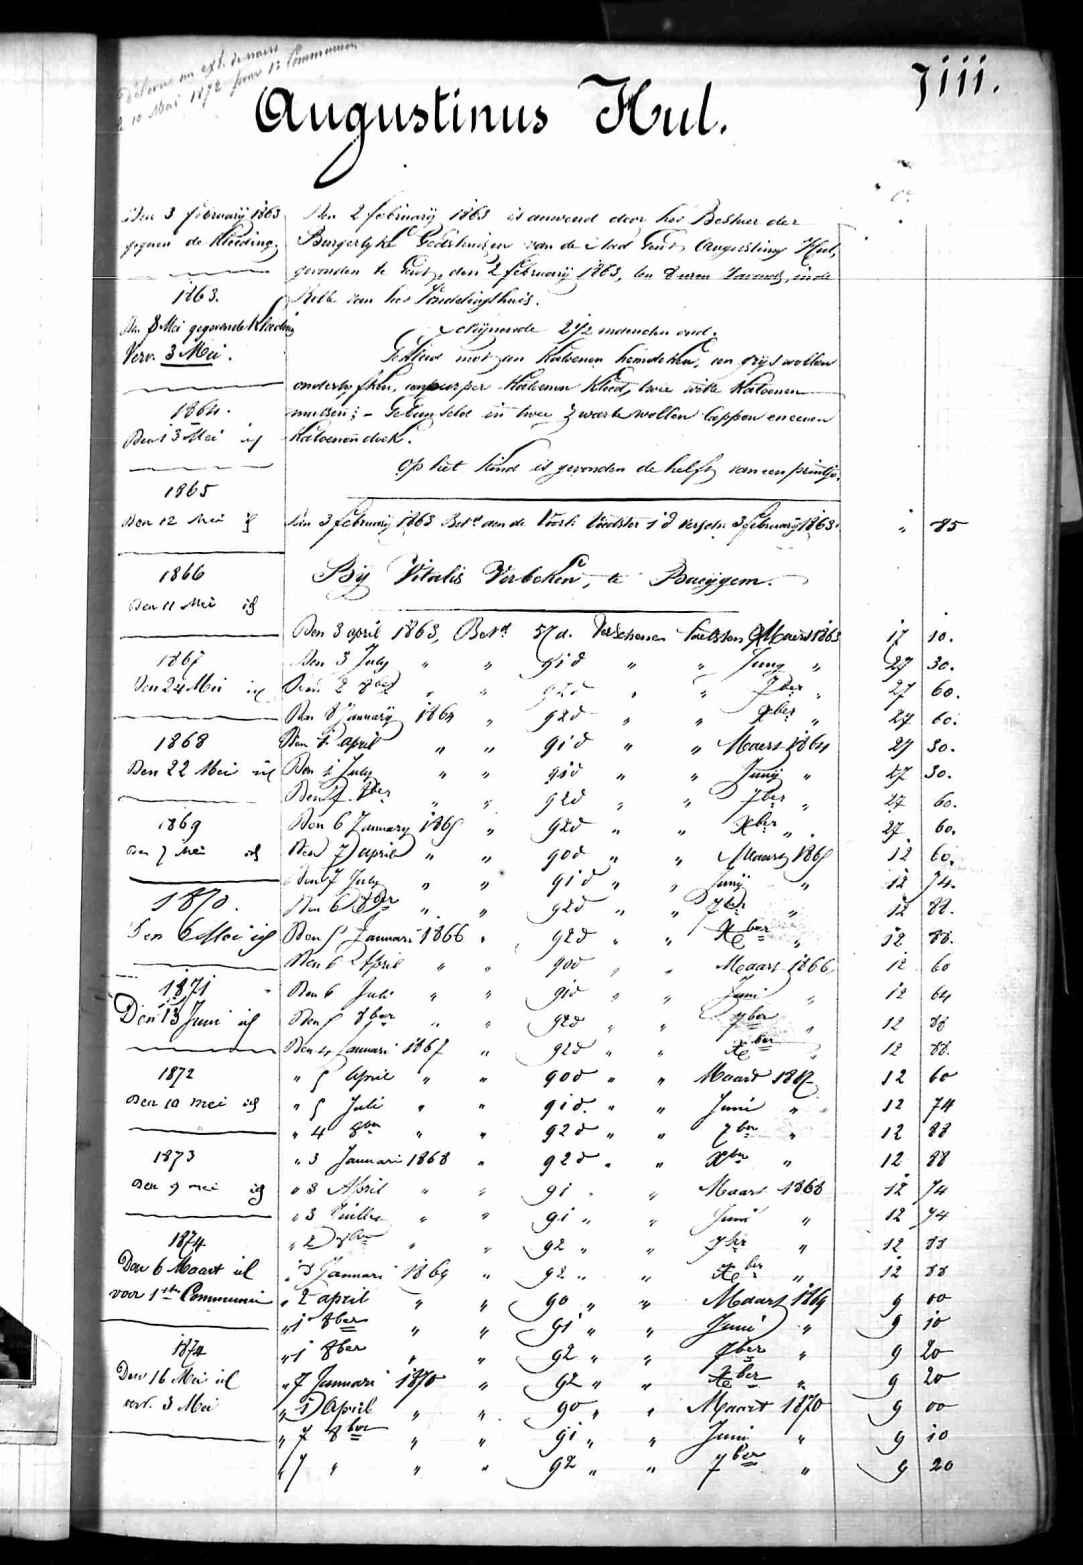 10 Mai 1872 pour 1e Communion
7111.
Augustinus Hul.
Den 3 february 1863
gegeven de Kleeding.
1863.
Den 8 Mei gegeven de Kleeding
Verv. 3 Mei.
1864.
Den 13 Mei id
1865
Den 12 Mei id
1866
Den 11 Mei id
1867
Den 24 Mei id
1868
Den 22 Mei id
1869
Den 7 Mei id
1870.
Den 6 Mei id
1871
Den 13 Juni id
1872
Den 10 mei id
1873
Den 9 mei id
1874
Den 6 Maart id
voor 1ste Communie
1874
Den 16 Mei id
verv. 3 Mei
Den 2 february 1863 is aanveerd door het Bestuer der
Burgerlyke Godshuizen van de stad Gent, Augustinus Hul,
gevonden te Gent, den 2 february 1863, ten 8 uren s'avonds, in de
Rolle van het Vondelingshuis.
Schijnende 2 1/2 maenden oud.
Gekleed met een Katoenen hemdeken, een grijs wollen
onderlyfken, een purper Katoenen Kleed, twee witte Katoenen
mutsen; - Gebunseld in twee zwarte wollen lappen en eenen
Katoenen doek.
Op het kind is gevonden de helft van een printje.
Den 3 february 1863 Bet.d aen de Voork Voedster 1 d Versch. 3 february 1863. " 85
Bij Vitalis Verbeken, te Baeygem.
Den 3 april 1863, Bet.d 57 d. Verschenen Maert 1863 17 10.
Den 3 July " " 91 d " " Juny " 27 30.
Den 2 8ber " " 92 d " " 7ber " 27 60.
Den 8 January 1864 " 92 d " " Xber " 27 60.
Den 1 april " " 91 d " " Maert 1864 27 30.
Den 1 July " " 91 d " " Junij " 27 30.
Den 7 8ber " " 92 d " " 7ber " 27 60.
Den 6 January 1865 " 92 d " " Xber " 27 60.
Den 7 april " " 90 d " " Maart 1865 12 60.
Den 7 July " " 91 d " " Junij " 12 74.
Den 6 8ber " " 92 d " " 7ber " 12 88.
Den 5 Januari 1866 " 92 d " " Xber " 12 88.
Den 6 April " " 90 d " " Maart 1866 12 60
Den 6 Juli " " 91 d " " Juni " 12 64
Den 5 8ber " " 92 d " " 7ber " 12 88
Den 4 Januari 1867 " 92 d " " Xber " 12 88.
" 5 April " " 90 d " " Maart 1867 12 60
" 5 Juli " " 91 d. " " Juni " 12 74
" 4 8ber " " 92 d " " 7ber " 12 88
" 3 Januari 1868 " 92 d " " Xber " 12 88
" 3 April " " 91 " " Maart 1868 12 74
" 3 Juillet " " 91 " " Juni " 12 74
" 2 8ber " " 92 " " 7ber " 12 88
" 8 Januari 1869 " 92 " " Xber " 12 88
" 2 april " " 90 " " Maart 1869 9 00
" 1 8ber " " 91 " " Juni " 9 10
" 1 8ber " " 92 " " 7ber " 9 20
" 7 Januari 1870 " 92 " " Xber " 9 20
" 1 April " " 90 " " Maart 1870 9 00
" 7 8ber " " 91 " " Juni " 9 10
" 7 " " " 92 " " 7ber " 9 20